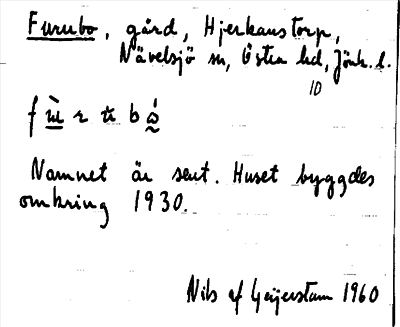 Furubo, gård, Hjerkanstorp,
Nävelsjö sn, Östra hd, Jönk. l.
10
Namnet är sent. Huset byggdes
omkring 1930.
Nils af Geijerstam 1960